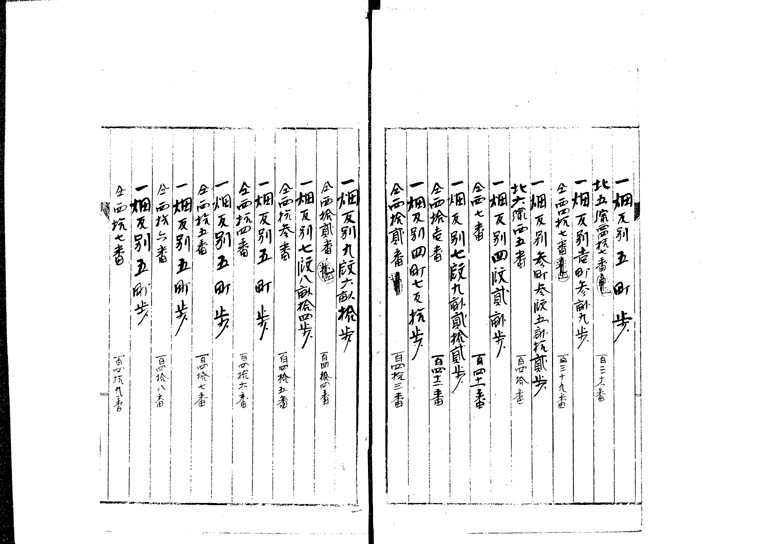 一畑反別五町歩
北五線西拾七番
百三十八番
一畑反別壱町参畝九歩
仝西四七番
百三十九番
一畑反別参町参段五畝拾貳歩
北六線西五番
百四拾番
一畑反別四段貳畝歩
仝西七番
百四十一番
一畑反別七段九畝貳拾貳歩
仝西拾壱番
百四十二番
一畑反別四町七反拾歩
仝西拾貳番
百四拾三番
一畑反別九段六畝拾歩
仝西拾貳番
百四拾四番
一畑反別七段八畝拾四歩
仝西拾参番
百四拾五番
一畑反別五町歩
仝西拾四番
百四拾六番
一畑反別五町歩
仝西拾五番
百四拾七番
一畑反別五町歩
仝西拾六番
百四拾八番
一畑反別五町歩
仝西拾七番
百四拾九番